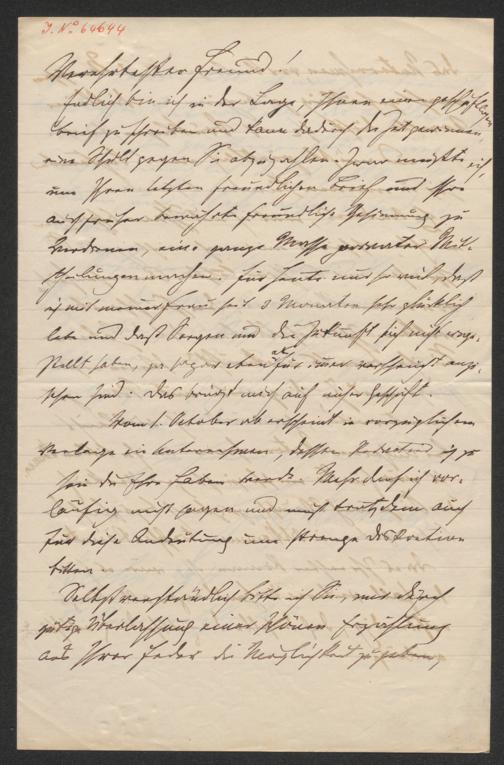 J. Nº 64644
Verehrtester Freund!
Endlich bin ich in der Lage, Ihnen einen geschäftlichen
Brief zu schreiben und kann dadurch die Zeit gewinnen,
eine Schuld gegen Sie abzuzahlen. Zwar möchte ich,
um Ihren letzten freundlichen Brief und Ihre
auch früher bewährte freundliche Gesinnung zu
verdienen, eine ganze Masse privater Mit-
theilungen machen. Für heute nur so viel, daß
ich mit meiner Frau seit 3 Monaten sehr glücklich
lebe und daß Sorgen um die Zukunft sich nicht einge-
stellt haben, ja sogar als für immer verscheucht anzu-
sehen sind. Das bringt mich auf mein Geschäft.
Vom 1. October ab erscheint in vorzüglichem
Verlage ein Unternehmen, dessen Redacteur ich zu
sein die Ehre haben werde. Mehr darf ich vor-
läufig nicht sagen und muß trotzdem auch
für diese Andeutung um strenge Diskretion
bitten.
Selbstverständlich bitte ich Sie, mir durch
gütige Überlassung einer schönen Erzählung
aus Ihrer Feder die Möglichkeit zu geben,